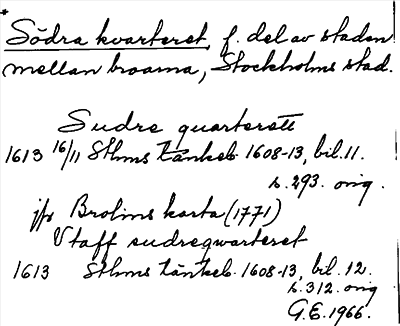 Södra kvarteret, f. del av staden
mellan broarna, Stockholms stad.
Sudre quarterett
1613 16/11 Sthms tänkeb. 1608-13, bil. 11.
s. 293. orig.
jfr Brolins karta (1771)
Vtaff sudreqwarteret
1613 Sthms tänkeb. 1608-13, bil. 12.
s. 312. orig
G.E. 1966.